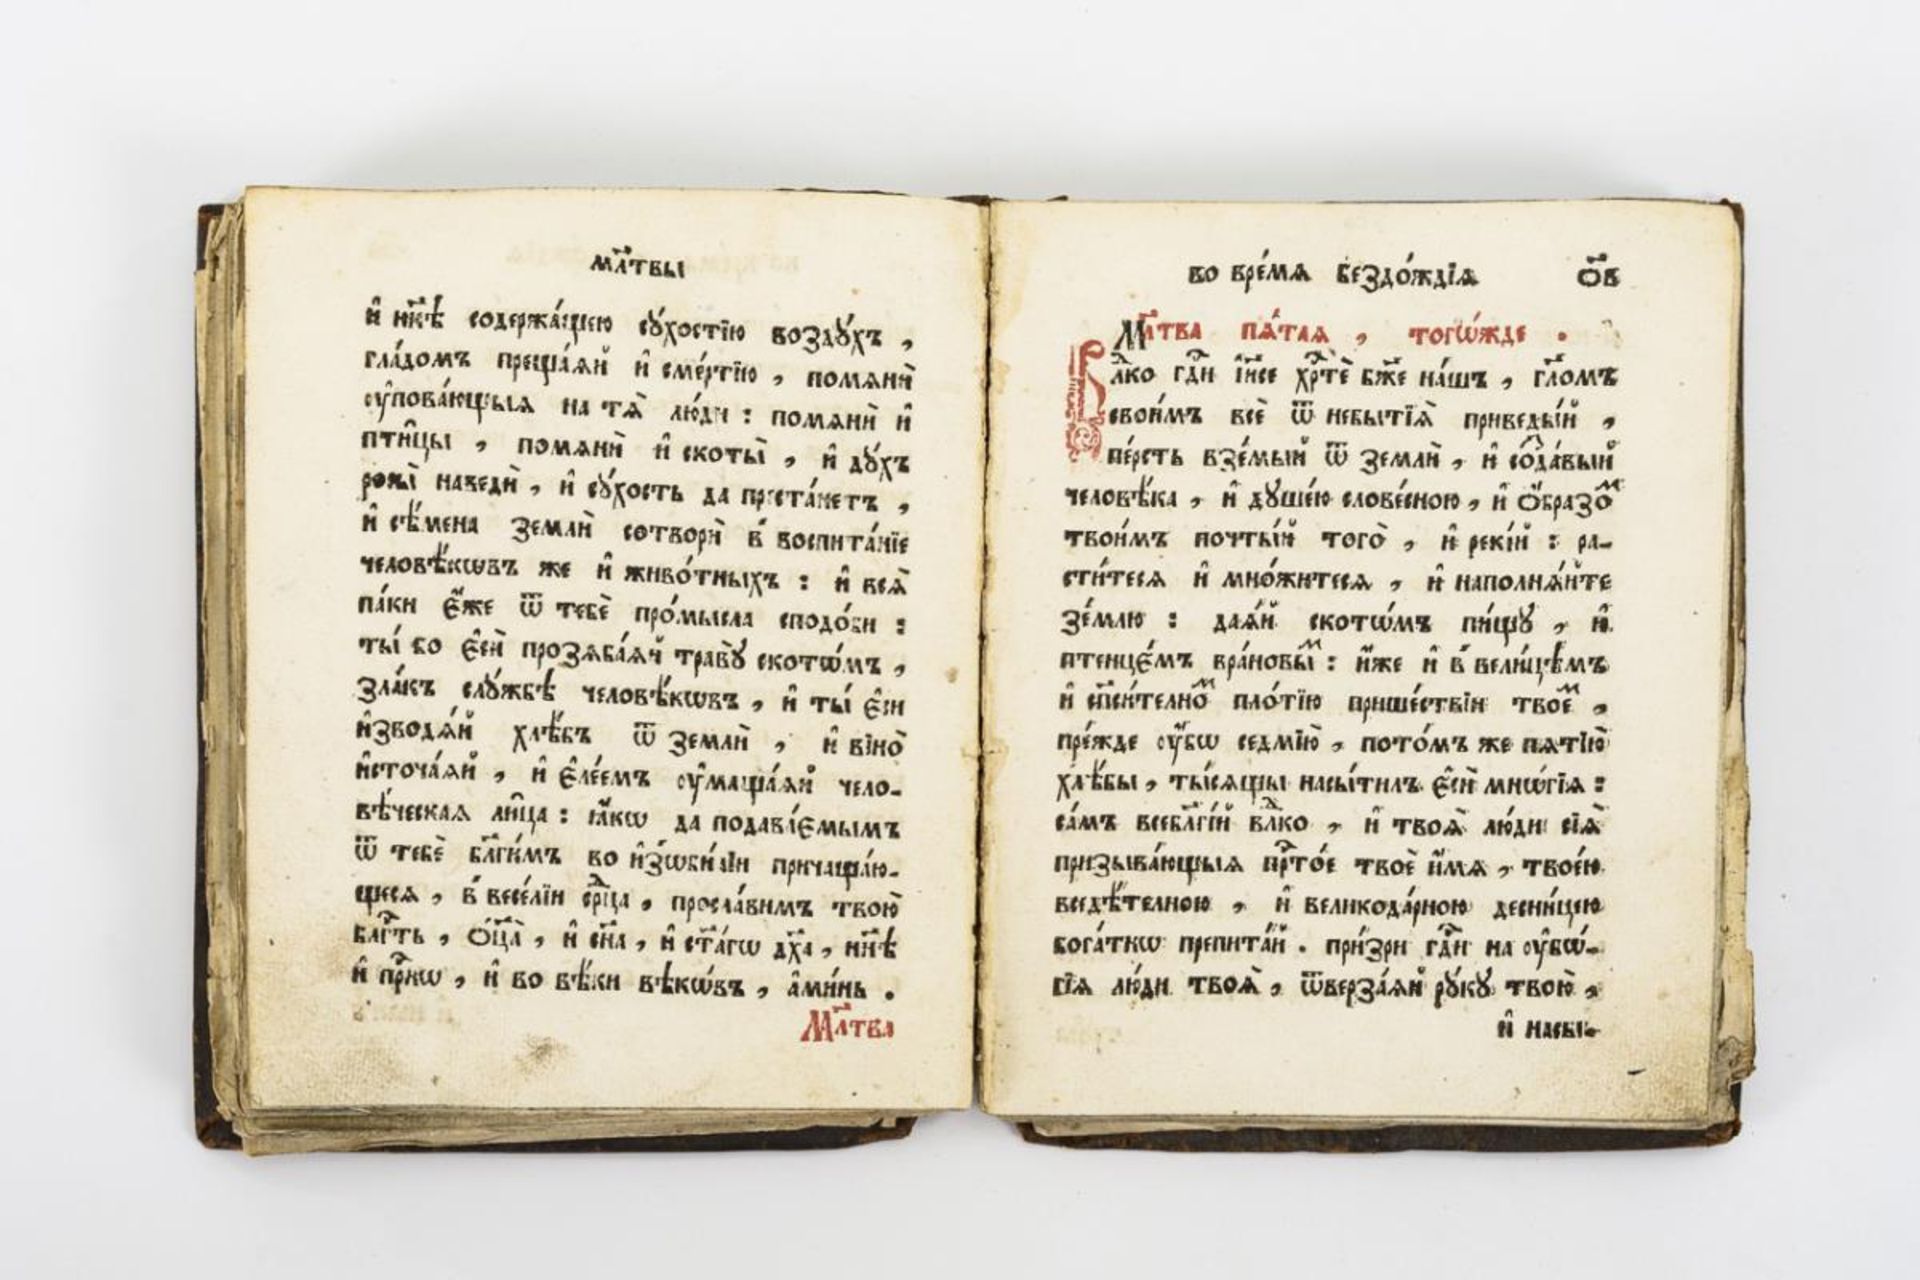 мл҃твы
и҆ нн҃ѣ содержа́щею сꙋ́хостїю воздꙋ́хъ ,
гла́домъ преща́ѧй и҆ сме́ртїю , помѧнѝ
ᲂу҆пова́ющыѧ на тѧ̀ лю́ди : помѧнѝ и҆
пти̑цы , помѧнѝ и҆ скоты̀ , и҆ дꙋ́хъ
росы̀ наведѝ , и҆ сꙋ́хость да преста́нетъ ,
и҆ сѣ́мена землѝ сотворѝ в̾ воспита́нїе
человѣ́кѡвъ же и҆ живо́тныхъ : и҆ всѧ̀
па́ки є҆́же ѿ тебѐ про́мысла сподо́би :
ты́ бо є҆сѝ прозѧба́ѧй травꙋ̀ скотѡ́мъ ,
зла́къ слꙋ́жбѣ человѣ́кѡвъ , и҆ ты́ є҆си
и҆зводѧ́й хлѣ́бъ ѿ землѝ , и҆ вїно̀
и҆сточа́ѧй , и҆ є҆ле́емъ ᲂу҆маща́ѧй чело-
вѣ́ческаѧ ли́ца : ꙗ҆́кѡ да подава́емымъ
ѿ тебѐ бл҃ги́мъ во и҆з̾ѡби́лїи причаща́ю-
щесѧ , в̾ весе́лїи ср҃дца , просла́вимъ твою̀
бл҃гть , ѻ҆ц҃а̀ , и҆ сн҃а , и҆ ст҃а́гѡ дх҃а , нн҃ѣ
и҆ пр҃нѡ , и҆ во вѣ́ки вѣкѡ́въ , а҆ми́нь .
Мл҃тва
во вре́мѧ бездо́ждїѧ ѻ҃в
Мл҃тва пѧ́таѧ , тогѡ́жде .
Влⷣко гдⷭ҇и і҆и҃се хрⷭ҇тѐ бж҃е на́шъ , гл҃омъ
свои́мъ всѐ ѿ небытїѧ̀ приведы́й ,
пе́рсть взе́мый ѿ землѝ , и҆ созⷣа́вый
человѣ́ка , и҆ дꙋше́ю слове́сною , и҆ ѻ҆́бразоⷨ
твои́мъ почты́й того̀ , и҆ реки́й : ра-
сти́тесѧ и҆ мно́житесѧ , и҆ наполнѧ́йте
зе́млю : даѧ́й скотѡ́мъ пи́щꙋ , и҆
птенце́мъ вра́новыⷨ : и҆́же и҆ в̾ вели́цѣмъ
и҆ сп҃си́телноⷨ пло́тїю прише́ствїи твоеⷨ ,
пре́жде ᲂу҆́бѡ седмїю̀ , пото́мъ же пѧтїю̀
хлѣ́бы , ты́сѧщы насы́тилъ є҆сѝ мнѡ́гїѧ :
са́мъ всебл҃гі́й влⷣко , и҆ твоѧ̀ лю́ди сїѧ̀
призыва́ющыѧ прⷭ҇то́е твоѐ и҆́мѧ , твое́ю
вседѣ́телною , и҆ великода́рною десни́цею
бога́тнѡ препита́й . при́зри гдⷭ҇и на ᲂу҆бѡ́-
гїѧ лю́ди твоѧ̀ , ѿверза́ѧй рꙋ́кꙋ твою̀ ,
и҆ насы-